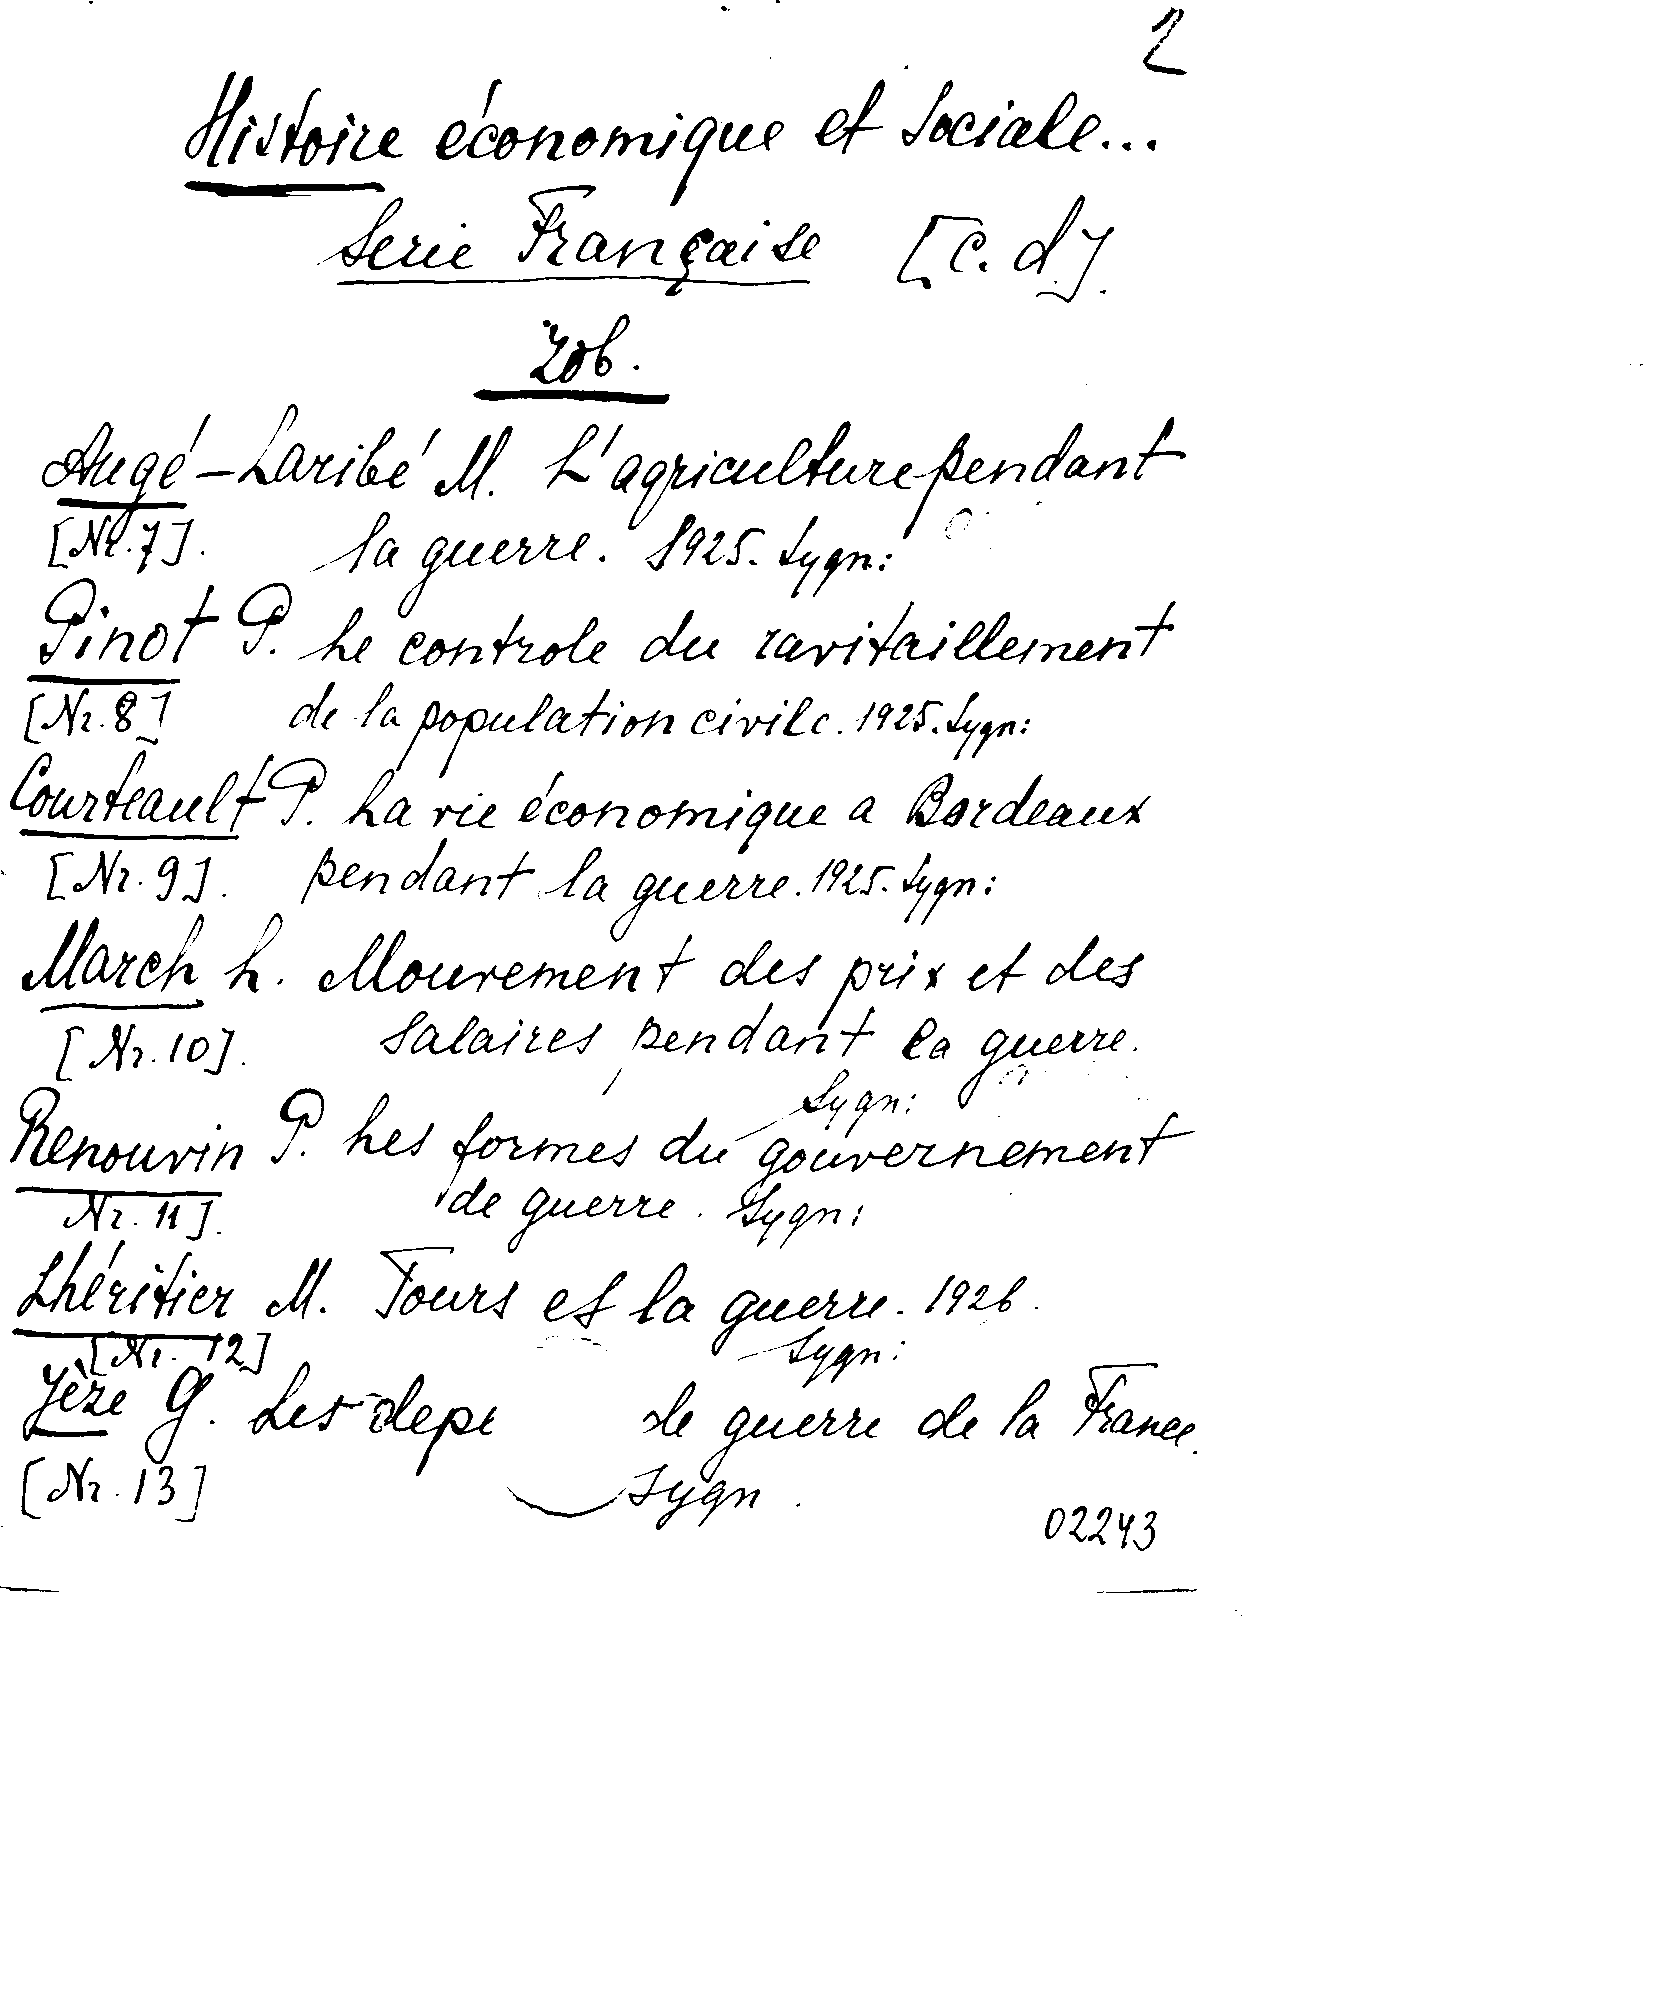 2
Histoire économique et Sociale...
Serie Française [c. d].
Zob.
Augé-Laribé M. L'agriculture pendant
[Nr. 7]. la guerre. 1925. Sygn:
Pinot P. Le controle du ravitaillement
[Nr. 8] de la population civile. 1925. Sygn:
Courteault P. La vie économique a Bordeaux
[Nr. 9]. pendant la guerre. 1925. Sygn:
March L. Mouvement des prix et des
[Nr. 10]. salaires pendant la guerre.
Sygn:
Renouvin P. Les formes du gouvernement
Nr. 11]. de guerre. Sygn:
Lhéritier M. Tours et la guerre. 1926.
[Nr. 12] Sygn:
Jèze G. Les depe de guerre de la France.
[Nr. 13] Sygn.
02243